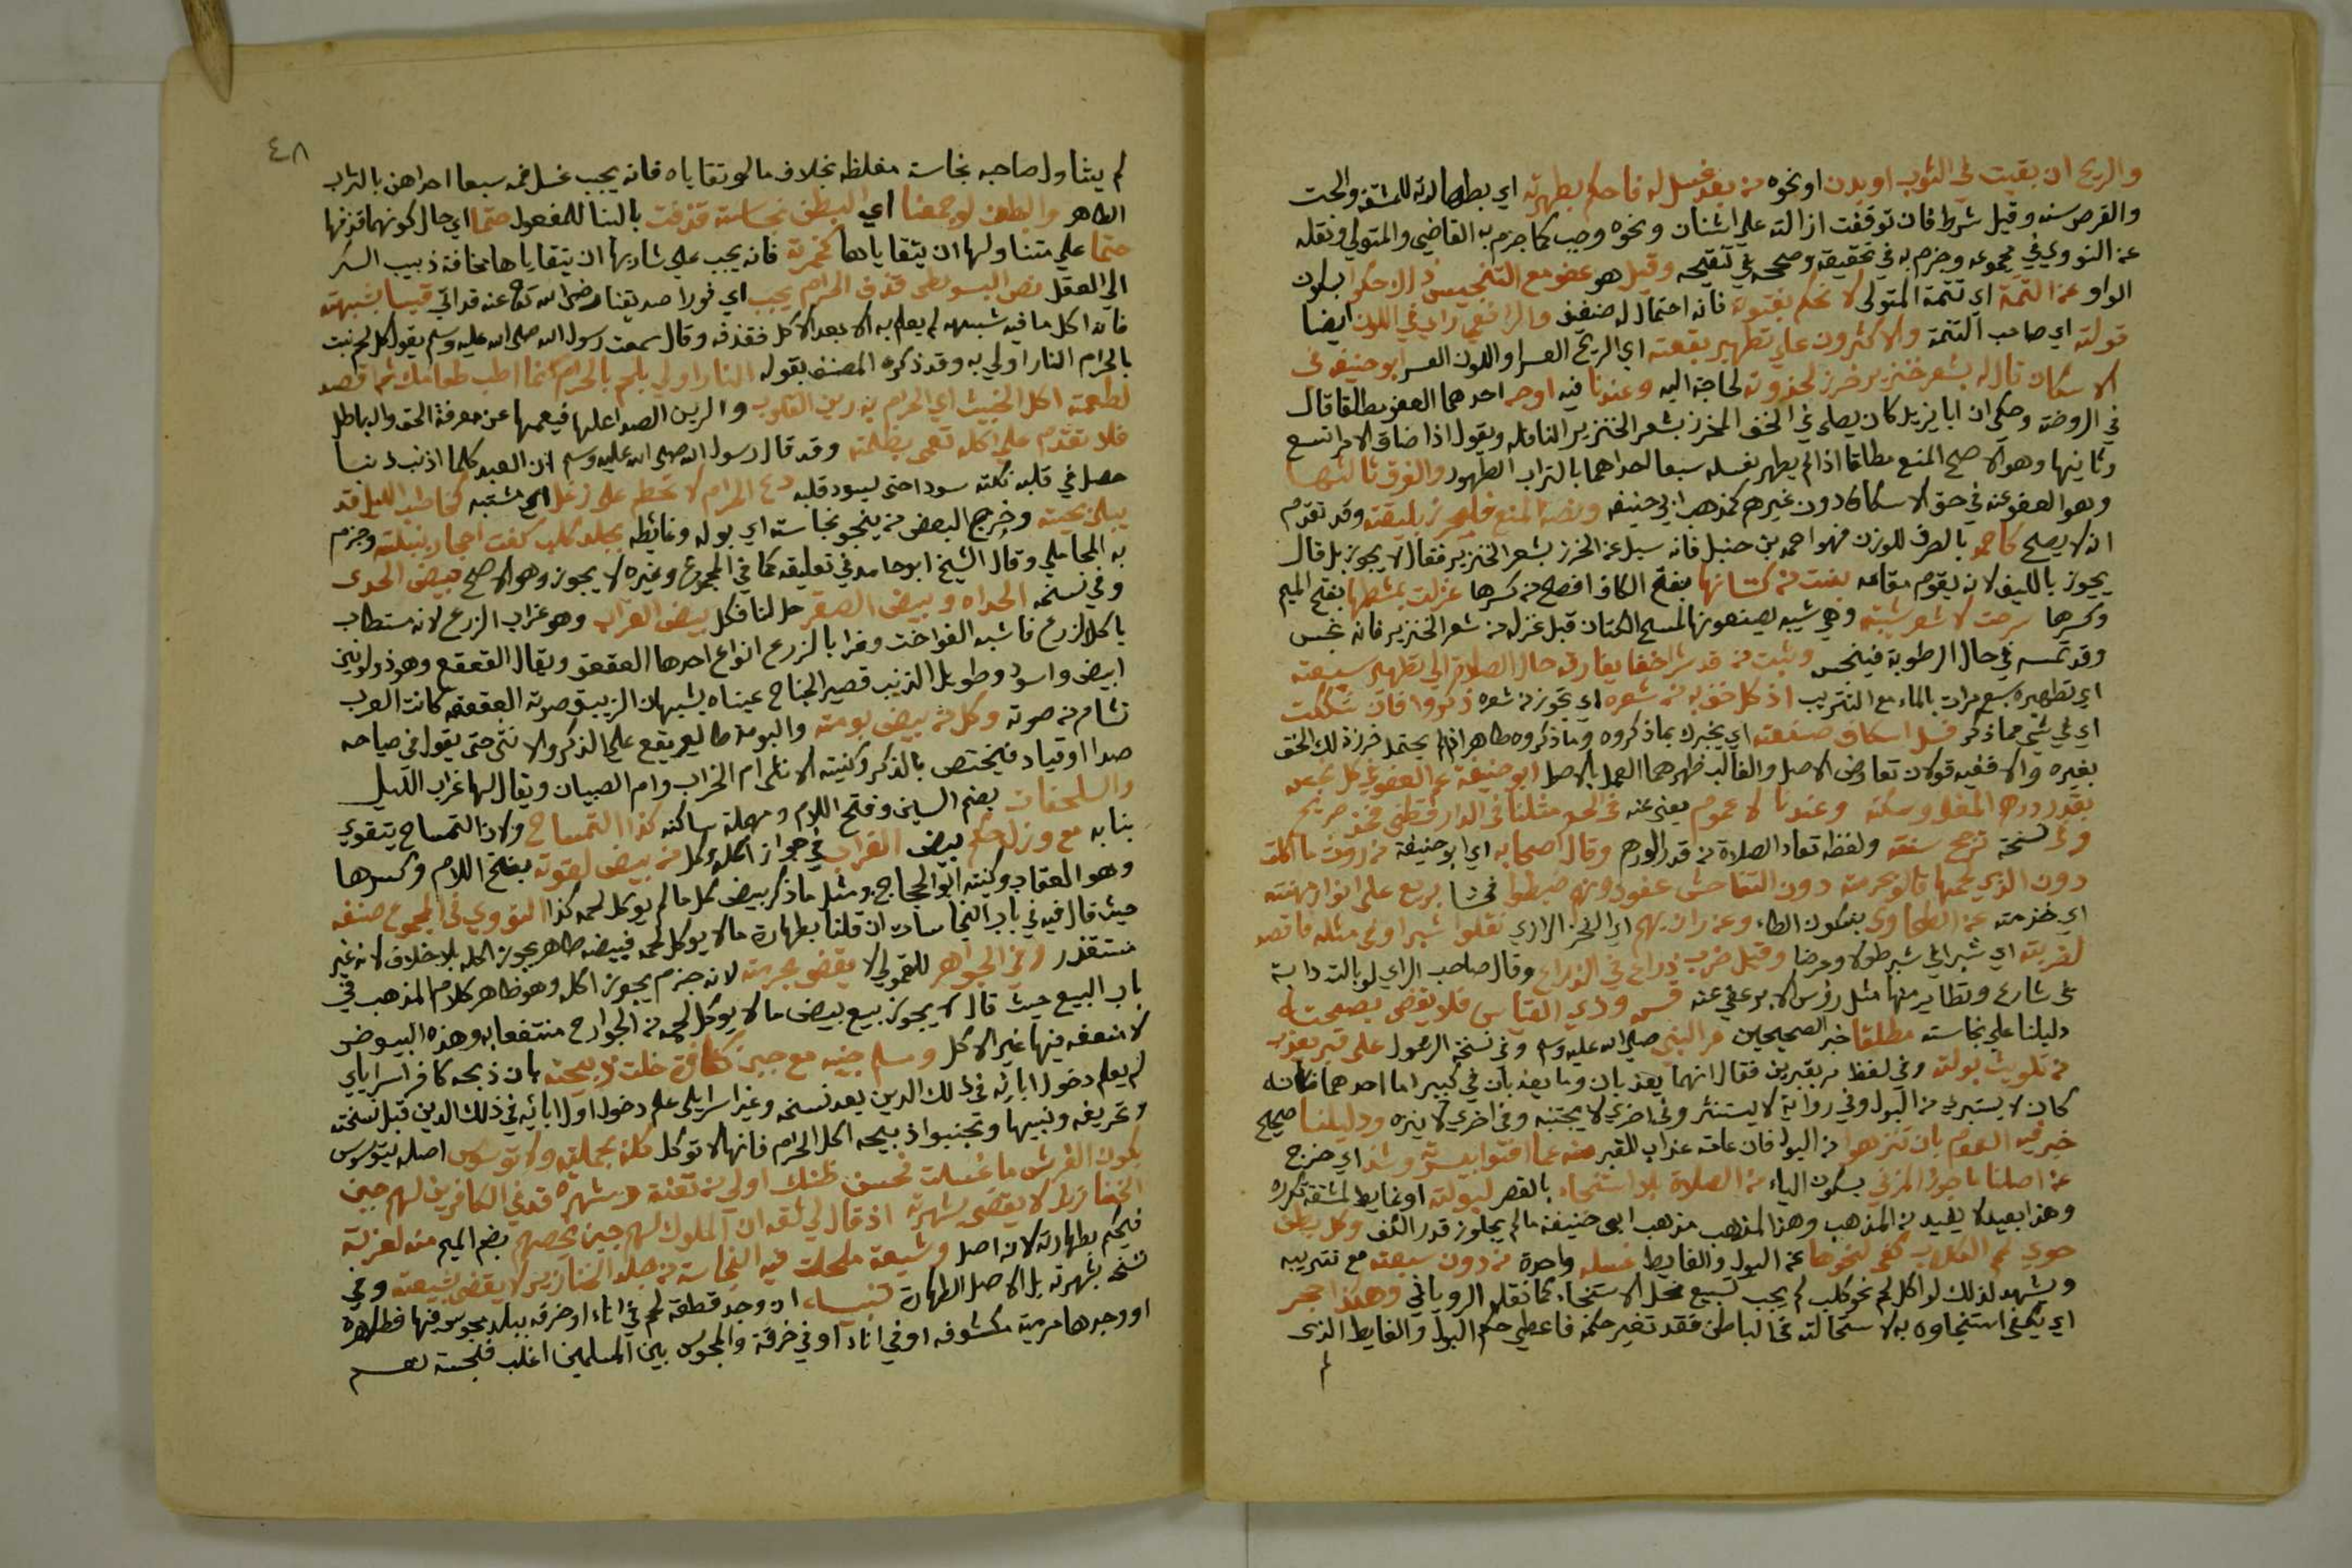 والريح ان بقيت في الثوب او بدن او نحوه من بعد غسل له فاحكم بطهرته اي بطهارته للمشقة والحت
والقرص سنه وقيل شرط فان توقفت ازالته على اشنان ونحوه وجب كما جزم به القاضي والمتولي ونقله
عن النووي في مجموعه وجزم به في تحقيقه وصححه في تنقيحه وقيل هو عفو مع التنجيس ذا لا حكوا بسكون
الواو عن التتمة اي تتمة المتولي لا تحكم بفتوته فانه احتمال له ضعيف والرافعي راي في اللون ايضا
قولته اي صاحب التتمة والاكثرون على تطهير بقعته اي الريح العسر او اللون العسر ابو حنيفة في
الاسكاف قال له بشعر خنزير خرز لحذوته لحاجة اليه وعندنا فيه اوجه احدهما العفو مطلقا قال
في الروضة وحكي ان ابا يزيد كان يصلي في الخف المخرز بشعر الخنزير النافلة ويقول اذا ضاق الامر اتسع
وثانيها وهو الاصح المنع مطلقا اذا لم يطهر بغسله سبعا احداهما بالتراب الطهور والفرق ثالثها
وهو العفو عنه في حق الاسكاف دون غيرهم كمذهب ابي حنيفه ونصه المنع فليخرز بليفته وقد تقدم
انه لا يصلح كاحمد بالصرف للوزن فهو احمد بن حنبل فانه سيل عن الخرز بشعر الخنزير فقال لا يجوز بل قال
يجوز بالليف لانه يقوم مقامه بفت من كتانها بفتح الكاف افصح من كسرها غزلت بمشطها بفتح الميم
وكسرها سرحت لا شعر شيته وهي شيه يصنعونها لمسح الكتان قبل غزله من شعر الخنزير فانه نجس
وقد تمسه في حال الرطوبة فينجس وثبت من قد شر اخفا يفارقه حال الصلاة الى تطهير سبعته
اي تطهيره سبع مرات بالماء مع التتريب اذ كل خف به من شعره اي تجوز من شعره ذكروا فان شككت
اي في شي مما ذكر فسل اسكاف صنعته اي يخبرك بما ذكروه وما ذكروه ظاهر اذا لم يحتمل خرزة لك الخف
بغيره والا ففيه قولان تعارض الاصل والغالب ظهرهما العمل بالاصل ابو حنيفة عم العفو في كل نجس
بقدر درهم المغلي وسكته وعندنا لا عموم يعني عنه في الحد مثلنا في الدار قطني فخذ صريح
وفي نسخة ترجح سنته ولفظه تعاد الصلاة من قدر الدرهم وقال اصحابه اي ابو حنيفة من روث ما اكلت
دون الذي لحمها قالو بحرمته دون التفاحش عفو دونه ضبطوا فحشا بربع على انواع مهنته
اي خدمته عن الطحاوي بسكون الطاء وعن رازيهم اي الفخر الرازي نقلوا شبرا وفي مثله فاقصد
لضربته اي شبرا في شبر طولا وعرضا وقيل ضرب ذراع في الذراع وقال صاحب الراي لو بالت دابة
في شارع وتطاير منها مثل رؤس الابر عفي عنه قس ودي القياس فلا تقضي بصحته
دليلنا على نجاسته مطلقا خبر الصحيحين مر النبي صلى الله عليه وسم وفي نسخة الرسول على قبر يعذب
من تلويث بولته وفي لفظ مر بقبرين فقال انهما يعذبان وما يعذبان في كبير اما احدهما فكانه
كان لا يستبري من البول وفي رواية لا يستنثر وفي اخري لا يجتنبه وفي اخري لا ينزه ودليلنا صحيح
خبر فيه العموم بان تنزهوا من البول فان عامة عذاب القبر منه عما افتوا بيسرته وشذ اي خرج
عن اصلنا ما جوز المزني بسكون الياء من الصلاة بلا استنجاء بالقصر لبولته او غايط لمشقة تكرره
وهذا بعيد لا يفيد من المذهب وهذا المذهب مذهب ابي حنيفة ما لم يجاوز قدر الكف وكل بطن
حوي لحم الكلاب كفى لخوضها عن البول والغايط غسله واحدة من دون سبعته مع تتريبه
ويشهد لذلك لو اكل لحم نحو كلب لم يجب تسبيع محل الاستنجاء كما نقله الروياني وهكذا حجر
اي يكفي استنجاوه به لاستحالته في الباطن فقد تغير حكمه فاعطي حكم البول والغايط الذي
لم
٤٨
لم يتناول صاحبه نجاسته مغلظه بخلاف ما لو تقاياه فانه يجب غسل فمه سبعا احداهن بالتراب
الطاهر والبطن لو جمعنا اي البطن نجاسته قذفت بالبنا للمفعول حتما اي حال كونهما قذفها
حتما علي متناولها ان يتقايادها كخمرته فانه يجب علي شاربها ان يتقاياها مخافة ذبيب السكر
الى العقل نص البويطي قذف الحرام يجب اي فورا صديقنا رضي الله تعالى عنه قد اتى قيسا بشبهته
فانه اكل ما فيه شبهه لم يعلم به الا بعد الاكل فقذفه وقال سمعت رسول الله صلى الله عليه وسم يقول كل لحم نبت
بالحرام النار اولي به وقد ذكره المصنف بقوله النار اولي بلحم بالحرام نما اطب طعامك ثم اقصد
لطعمته اكل الخبيث اي الحرام به رين القلوب والرين الصدا عليها فيعميها عن معرفة الحق والباطل
فلا تقدم علي اكل تعمي بظلمته وقد قال رسول الله صلى الله عليه وسم ان العبد كلما اذنب ذنبا
حصل في قلبه نكته سودا حتى يسود قلبه دع الحرام لا تحطم على زغل اي مشتبه كحاطب الليل قد
يبلى بحيته وخرج البعض من ينجو نجاسته اي بوله وغائطه بجلد كلب كفت احجار نبلته وجزم
به المحاملي وقال الشيخ ابو حامد في تعليقه كما في المجموع وغيره لا يجوز وهو الاصح بيض الحدى
وفي نسخه الحداه وبيض الصقر حل لنا فكل بيض الغراب وهو غراب الزرع لانه مستطاب
ياكل الزرع فاشبه الفواخت وغراب الزرع انواع احدها العقعق ويقال القعقع وهو ذو لونين
ابيض واسود وطويل الذنب قصير الجناح عيناه يشبهان الزيبق صوته العقعقه كانت العرب
تشام من صوته وكل من بيض بومته والبومة طاير يقع علي الذكر والانثى حتى يقول في صياحه
صدا او قياد فيختص بالذكر وكنيته الانثى ام الخراب وام الصبيان ويقال لها غراب الليل
والسلحفات بضم السين وفتح اللام ومهملة ساكنه كذا التمساح ولان التمساح يتقوي
بنابه مع وزل حكم بيض الغراب في جواز اكله وكل من بيض لقوته بفتح اللام وكسرها
وهو العقاب وكنيته ابو الحجاج ومثل ما ذكر بيض كل ما لم يوكل لحمه كذا النووي في المجموع صنفه
حيث قال فيه في باب النجاسات ان قلنا بطهارة ما لا يوكل لحمه فبيضه طاهر يجوز اكله بلا خلاف لانه غير
مستقذر وفي الجواهر للقمولي لا يقضي بحرمته لانه جزم يجوز اكله وهو ظاهر كلام المذهب في
باب البيع حيث قال لا يجوز بيع بيض ما لا يوكل لحمه من الجوارح منتفعا به وهذه البيوض
لا منفعه فيها غير الاكل وسلم جنبه مع جبن كفافرة خلت ذبيحته بان ذبحه كافر اسرايلي
لم يعلم دخول ابائه في ذلك الدين بعد نسخه وغير اسرايلي علم دخول اول ابائه في ذلك الدين قبل نسخته
وتحريفه ونبيها وتجنبوا ذبيحه اكل الحرام فانها لا توكل كله بجملته ولا توسوس اصله يتوسوس
يكون الفرش ما غسلت نحسن ظنك اولي من تفتة وشهره قد في الكافرين لهم جبن
الخنازير لا يقضى بشهرته اذ قال لي ثقه ان الملوك لهم جبن يخصهم بضم الميم منه لعزته
فيحكم بطهارته لانه اصل وشيعة ملحت فيه النجاسة من جلد الخنازير لا يقضى بشيعته وفي
نسخه بشهرته بل الاصل الطهارة تنبيه ان وجد قطعة لحم في اناء او خرقه ببلد مجوس فيها فطاهرة
او وجدها مرمية مكشوفه او في اناء او في خرقة والمجوس بين المسلمين اغلب فنجسة نعم